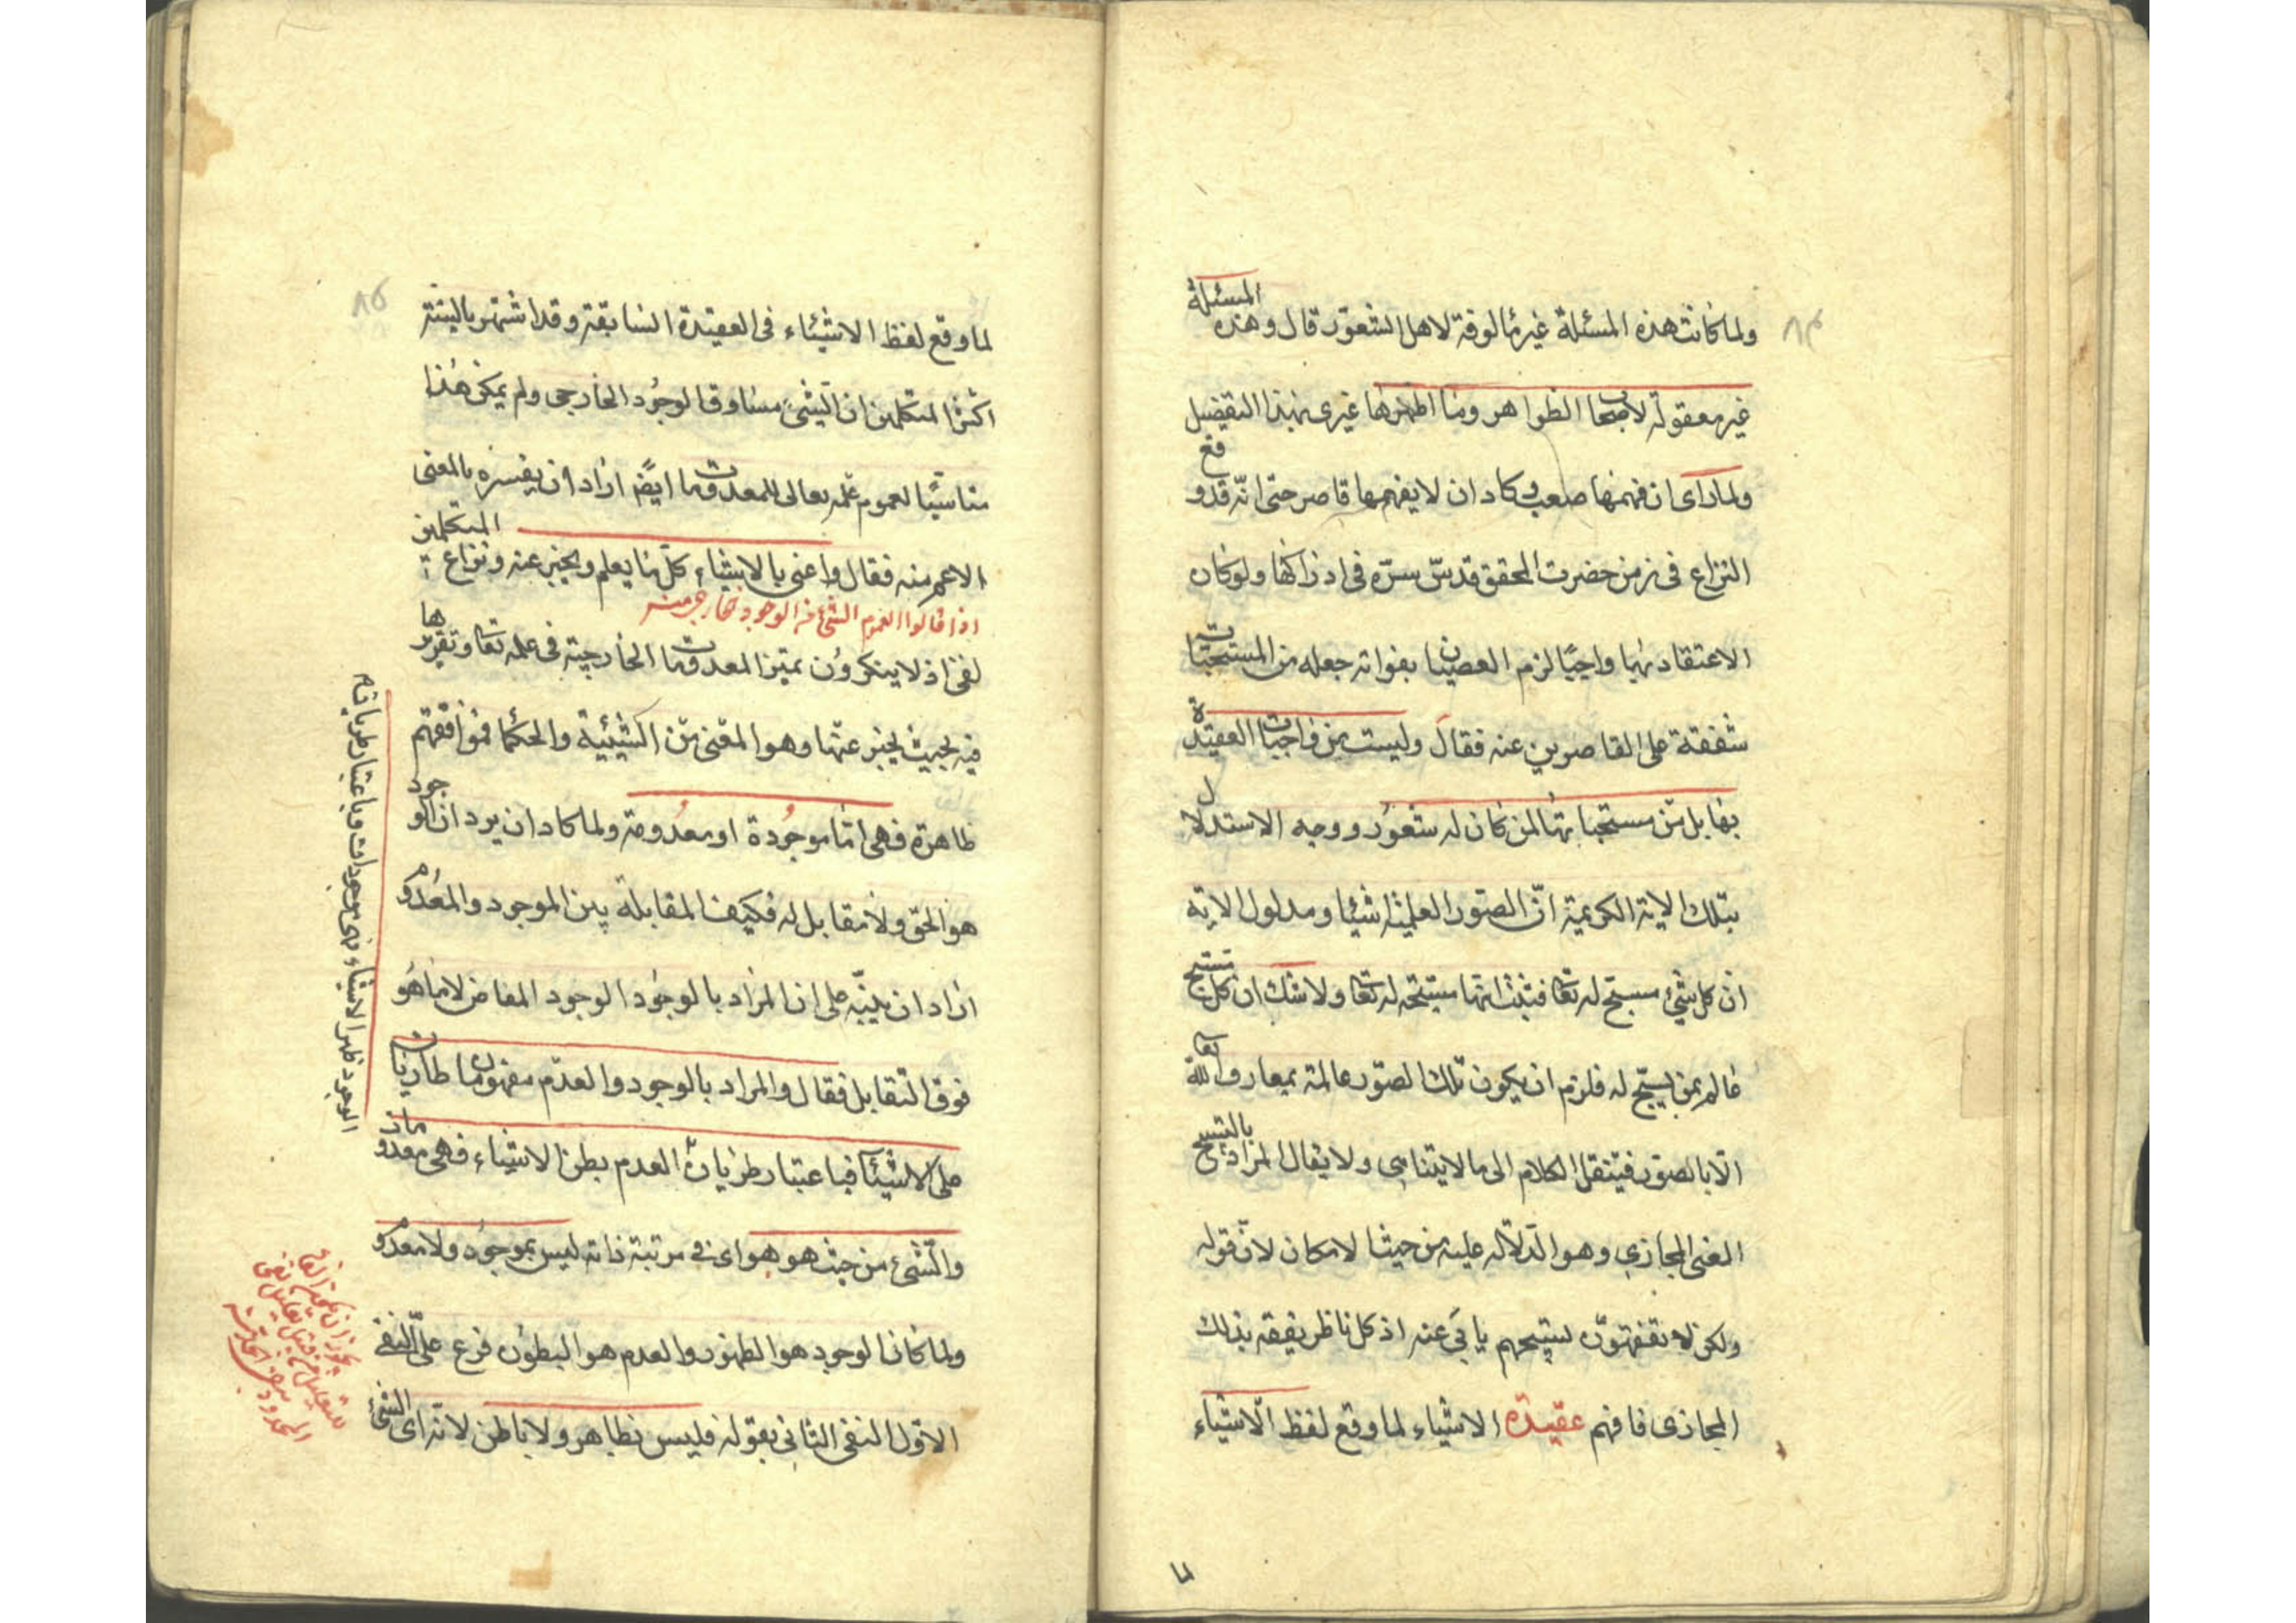 ٨٤
ولما كانت هذه المسئلة غير مألوفة لاهل الشعور قال وهذه المسئلة
غير معقولة لاصحاب الظواهر وما اظهرها غيرى بهذا التفصيل
ولما رأى ان فهمها صعب وكاد ان لا يفهمها قاصر حتى انه قد وقع
النزاع فى زمن حضرت المحقق قدس سرّه فى ادراكها ولو كان
الاعتقاد بها واجبًا لزم العصيان بفواته جعله من المستحبات
شفقة على القاصرين عنه فقال وليست من واجبات العقيدة
بها بل من مستحباتها لمن كان له شعور ووجه الاستدلال
بتلك الاية الكريمة انّ الصور العلمية اشيئا ومدلول الاية
ان كل شئ مسبح له تعا فيثبت انها مسبحة له تعا ولا شك ان كل مسبح
عالم بمن يسبح له فلزم ان يكون تلك الصور عالمة بمعارف الله تعا
الّا بالصور فينتقل الكلام الى ما لا يتناهى ولا يقال المراد بالتسبيح
المعنى المجازي وهو الدلالة عليه من حيث الامكان لانّ قوله
ولكن لا تفقهون تسبيحهم يابى عنه اذ كل ناظر يفقه بذلك
المجازى فافهم عقيدة الاشياء لما وقع لفظ الاشياء
لما
٨٥
لما وقع لفظ الاشياء فى العقيدة السابقة وقد اشتهر بالسنة
اكثر المتكلمين ان الشئ مساوق الوجود الخارجى ولم يمكن هذا
مناسبًا لعموم علمه تعالى للمعدومات ايضًا اراد ان يفسره بالمعنى
الاعم منه فقال واعنى بالاشياء كل ما يعلم ويخبر عنه ونزاع المتكلمين
اذا قالوا العموم الشئ من الوجود الخارجى منه
لفظى اذ لا ينكرون تميز المعدومات الخارجية فى علمه تعا وتقررها
فيه بحيث يخبر عنها وهو المعنى من الشيئية والحكما فموافقتهم
ظاهرة فهى امّا موجودة او معدومة ولما كاد ان يرد ان الوجود
هو الحق ولا مقابل له فكيف المقابلة بين الموجود والمعدوم
اراد ان ينبّه على ان المراد بالوجود الوجود المفاض لا ما هو
فوق التقابل فقال والمراد بالوجود والعدم مفهومان طاريات
على الاشيئا فباعتبار طريان العدم بطن الاشياء فهى معدومات
والشئ من حيث هو هو اى فى مرتبة ذاته ليس بموجود ولا معدوم
ولما كان الوجود هو الظهور والعدم هو البطون فرع على النفى
الاول النفى الثانى بقوله فليس بظاهر ولا باطن لانه اى الشئ
وباعتبار طريان الوجود ظهر الاشياء فهى موجودات